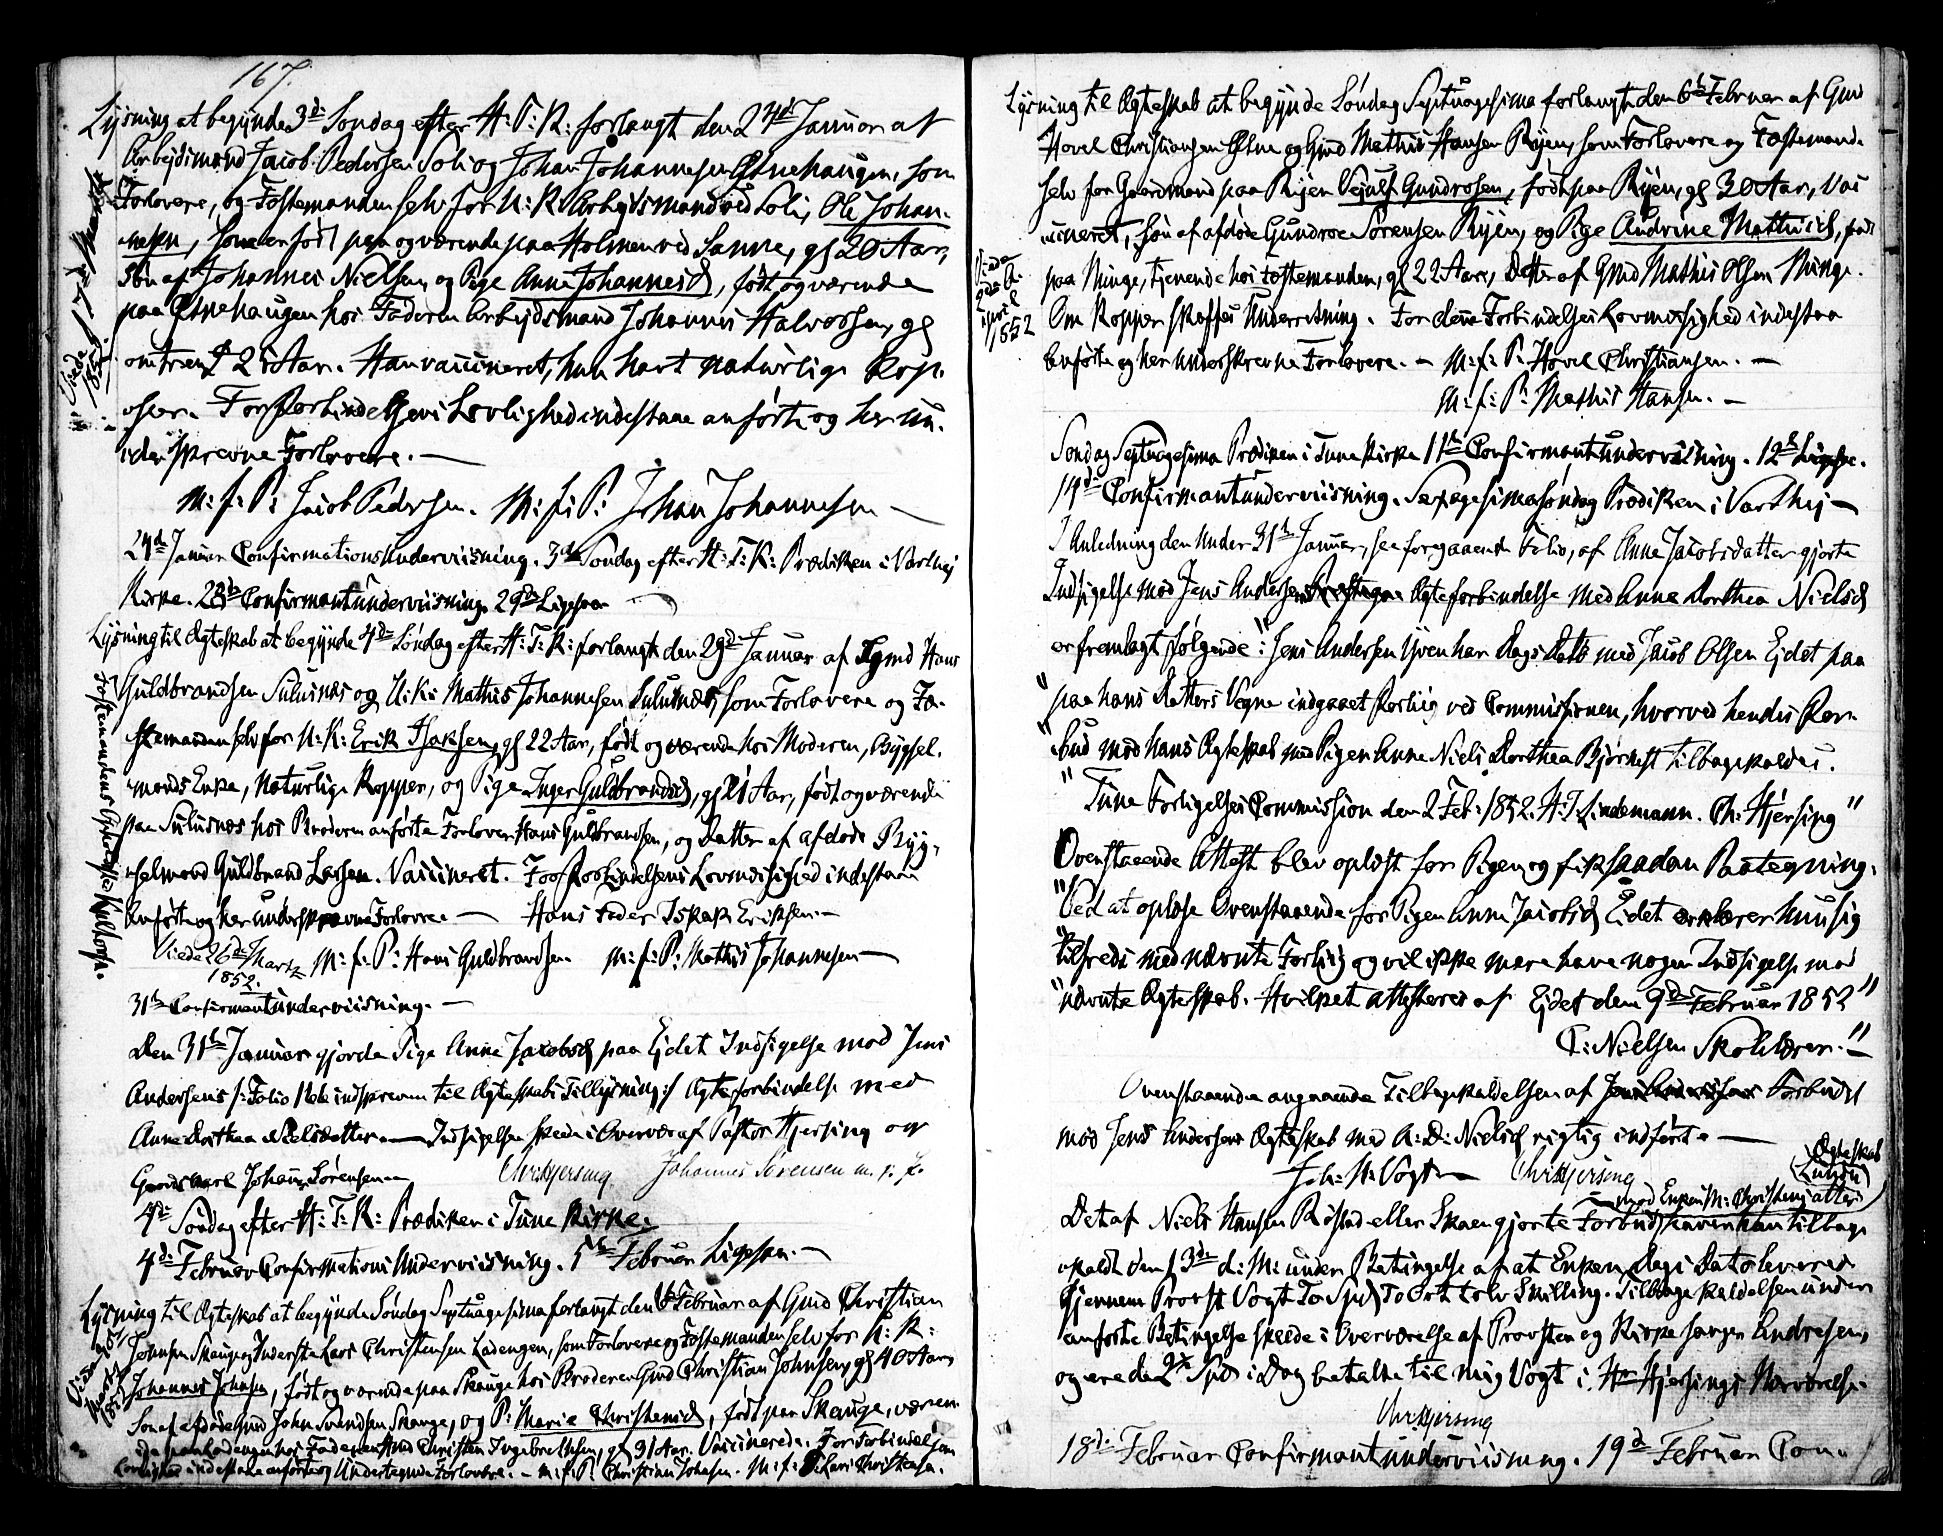 167.
Lysning at begynde 3d: Søndag efter H: T: K: forlangt den 24d Januar af
Arbejdsmand Jacob Pedersen Soli og Johan Johannesen Ølnehaugen, som
Forlovere, og Fæstemanden selv for U: K: Arbejdsmand ved Soli, Ole Johan-
nesen, som er født paa og værende paa Holmen ved Sanne, gl 20 Aar,
Søn af Johannes Nielsen, og Pige Anne Johannesd, født og værende
paa Ølnehaugen hos Faderen Arbejdsmand Johannes Halvorsen, gl
omtrent 21 Aar. Han vaccineret, hun havt naturlige Kop-
per. For Forbindelsens Lovlighed indestaae anførte og her un-
derskrevne Forlovere. —
M: f: P: Jacob Pedersen. M: f: P: Johan Johannesen —
24d Januar Confirmations Underviisning. 3die Søndag efter H: T: K: Prædiken i Varthej
Kirke. 28de Confirmantunderviisning. 29de Ligesaa
Lysning til Ægteskab at begynde 4d: Søndag efter H: T: K: forlangt den 29d Januar af Bgmd Hans
Guldbrandsen Sulusnæs og U: K: Mathis Johannesen Sulusnæs, som Forlovere og Fæ-
stemanden selv for U: K: Erik Isaksen, gl 22 Aar, født og værende hos Moderen, Bygsel-
mands Enke, Naturlige Kopper, og Pige Inger Guldbrandsd, gl 21 Aar, født og værende
paa Sulusnæs hos Broderen anførte Forlover Hans Guldbrandsen, og Datter af afdøde Byg-
selmand Guldbrand Larsen. Vaccineret. For Forbindelsens Lovmæsighed indestaae
Anførte og her underskrevne Forlovere — Hans Fader Isak Eriksen. —
Viede 26d: Martz 1852. M: f: P: Hans Guldbrandsen M: f: P: Mathis Johannesen —
Fæstemandens
31te Confirmantunderviisning. —
Den 31te Januar gjorde Pige Anne Jacobsd paa Ejdet Indsigelse mod Jens
Andersens /: Folio indskreven til Ægteskabs Tillysning :/ Ægteforbindelse med
Anne Dorthea Nielsdatter. — Indsigelsen skede i Overvær af Pastor Hjersing og
Johannes Sørensen —
Chr Hjersing Johannes Sørensen m. p. P.
4d: Søndag efter H: T: K: Prædiken i Tune Kirke.
4d: Februar Confirmations Underviisning. 5te Februar Ligesaa. —
Lysning til Ægteskab at begynde Søndag Septuagesima forlangt den 6 Februar af Gmd Christian
Johnsen Skauge og Inderste Lars Christensen Ladengen, som Forlovere og Fæstemanden selv for U: K:
Johannes Johnsen, født og værende paa Skauge hos Broderen Gmd Christian Johnsen, gl 40 Aar,
Søn af afdøde Gmd John Svendsen Skauge, og P: Marie Christensd, født paa Skauge, væren-
de paa Ladengen hos Faderen Christen Ingebretsen, gl 31 Aar. Vaccinerede. For Forbindelsens
Lovlighed indestaae anførte og Undertegnede Forlovere. — M: f: P: Christian Johnsen. M: f: P: Lars Christensen.
Lysning til Ægteskab at begynde Søndag Septuagesima forlangt den 6te Februar af Gmd
Hovel Christiansen Ølne og Gmd Mathis Hansen Ryen, som Forlovere og Fæstemand-
selv for Gaardmand paa Ryen Vejulf Gundrosen, født paa Ryen, gl 30 Aar, Vac
cineret, Søn af afdøde Gundroe Sørensen Ryen, og Pige Andrine Mathisd, født
paa Ninge, tjenende hos Fæstemanden, gl 22 Aar, Datter af Gmd Mathis Olsen Ninge.
Om Kopper skaffes Underretning. For denne Forbindelses Lovmæsighed indestaae
anførte og her underskrevne Forlovere. — M: f: P: Hovel Christiansen. —
M: f: P: Mathis Hansen. —
April 1852
Søndag Septuagesima Prædiken i Tune Kirke 11te Confirmantunderviisning. 12te Ligesaa.
14d: Confirmantunderviisning. Sexagesima Søndag Prædiken i Varthej —
I Anledning den under 31te Januar, see foregaaende Folio, af Anne Jacobsdatter gjorte
Indsigelse mod Jens Andersens Ægteforbindelse med Anne Dorthea Nielsd
er fremlagt følgende: "Jens Andersen Yven har Dags Dato med Jacob Olsen Ejdet paa
"paa hans Datters Vegne indgaaet Forliig ved Commissionen, hvorved hendes For-
"bud mod hans Ægteskab med Pigen Anne Niels Dorthea Bjørnest tilbagekaldes.
"Tune Forligelses Commission den 2 Feb: 1852. H: J. Lindemann. Ch: Hjersing"
Ovenstaaende Attest blev oplæst for Pigen og fik saadan Paategning:
"Ved at oplæse Ovenstaaende for Pigen Anne Jacobsd Ejdet erklærer hun sig
"tilfreds med nævnte Forliig og vil ikke mere have nogen Indsigelse mod
"nævnte Ægteskab. Hvilket attesteres af Ejdet den 9d: Februar 1852"
C: Nielsen Skolelærer." —
Ovenstaaende angaaende Tilbagekaldelsen af Forbudet
mod Jens Andersens Ægteskab med A: D: Nielsd rigtig indførte —
Joh: H: Vogt — Chr Hjersing
Det af Niels Hansen Røstad eller Skaen gjorte Forbud mod Enken M: Christensdatters Ægteskab haver han tilbage
kaldt den 13de d: M: under Betingelse af at Enken Dags Dato leverede
Gjennem Provst Vogt To Spd To Ort tolv Skilling. Tilbagekaldelsen under
anførte Betingelse skeede i Overværelse af Provsten og Kirkesanger Andresen,
og ere de Spd i Dag betalte til mig Vogt i Hr Hjersings Nærværelse.
Chr Hjersing
18d: Februar Confirmantunderviisning. 19d Februar Con-